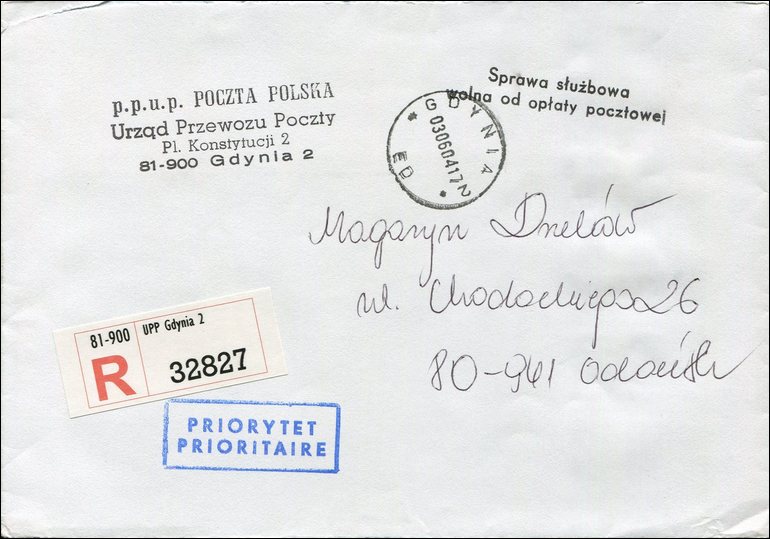 p.p.u.p. POCZTA POLSKA
Urząd Przewozu Poczty
Pl. Konstytucji 2
81-900 Gdynia 2
Sprawa służbowa
wolna od opłaty pocztowej
* GDYNIA 2 *
03060417
Magazyn Druków
ul. 26
80-941 Gdańsk
81-900 UPP Gdynia 2
R 32827
PRIORYTET
PRIORITAIRE